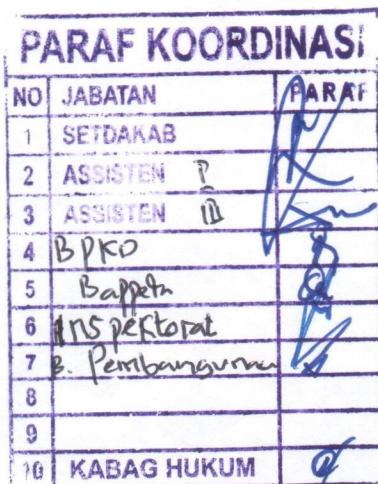 PARAF KOORDINASI
NO JABATAN PARAF
1 SETDAKAB
2 ASSISTEN I
3 ASSISTEN III
4 BPKD
5 Bappeda
6 Inspektorat
7 B. Pembangunan
8
9
10 KABAG HUKUM